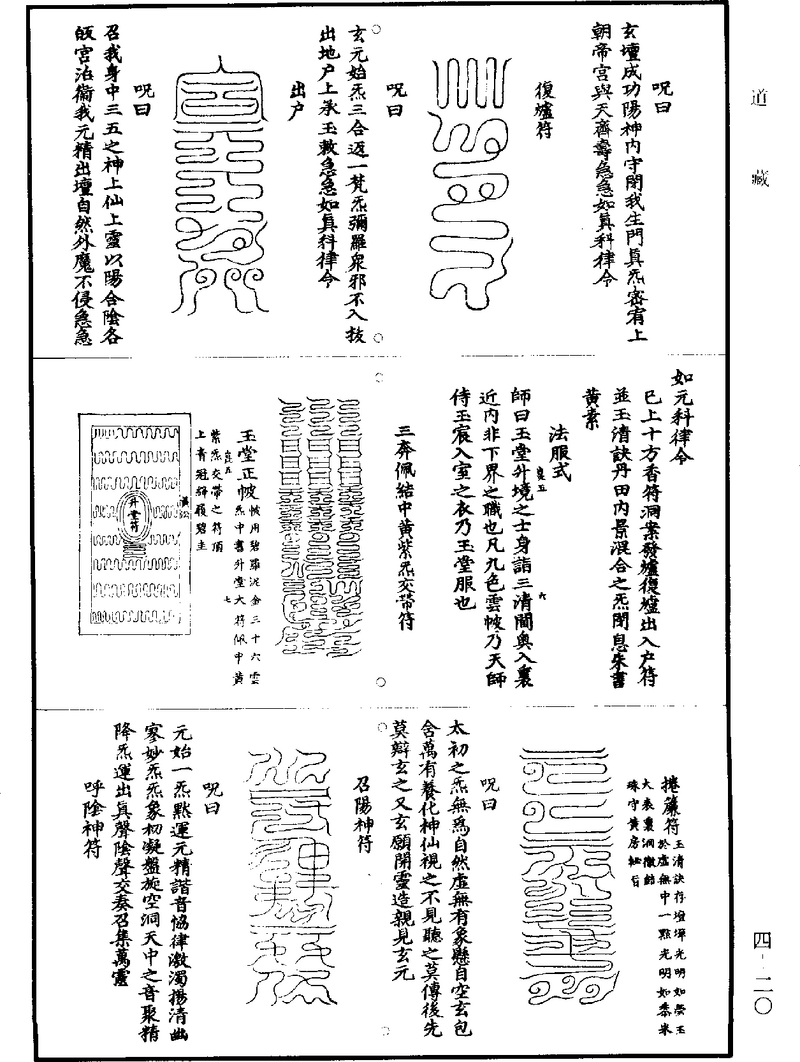 道藏
呪曰
玄壇成功陽神内守開我生門真炁密宥上
朝帝宫與天齊壽急急如真科律令
復爐符
呪曰
玄元始炁三合迈一梵炁彌羅衆邪不入扳
出地户上承玉敕急急如真科律令
出户
呪曰
召我身中三五之神上仙上靈以陽合陰各
皈宫治衛我元精出壇自然外魔不侵急急
如元科律令
已上十方香符洞案發爐復爐出入户符
並玉清訣丹田内景混合之炁閉息朱書
黄素
法服式
師曰玉堂升境之士身詣三清閫奥入裏
近内非下界之職也凡九色雲帔乃天師
侍玉宸入室之衣乃玉堂服也
良五
六
三奔佩結中黄紫炁交帶符
玉堂正帔
帔用碧羅泥金三十六雲
炁中書升堂大符佩中黄
紫炁交帶之符頂
上青冠碎履碧圭
良五
七
升堂符
捲簾符
玉清訣存壇墠光明如瑩玉
於虚無中一點光明如黍米
大表裏洞徹餘
珠守黄房秘旨
呪曰
太初之炁無爲自然虚無有象懸自空玄包
含萬有養化神仙視之不見聽之莫傳後先
莫辯玄之又玄願開靈造親見玄元
召陽神符
呪曰
元始一炁默運元精諧音恊律激濁揚清幽
寥妙炁炁象初凝盤旋空洞天中之音聚精
降炁運出真聲陰聲交奏召集萬靈
呼陰神符
四-二〇